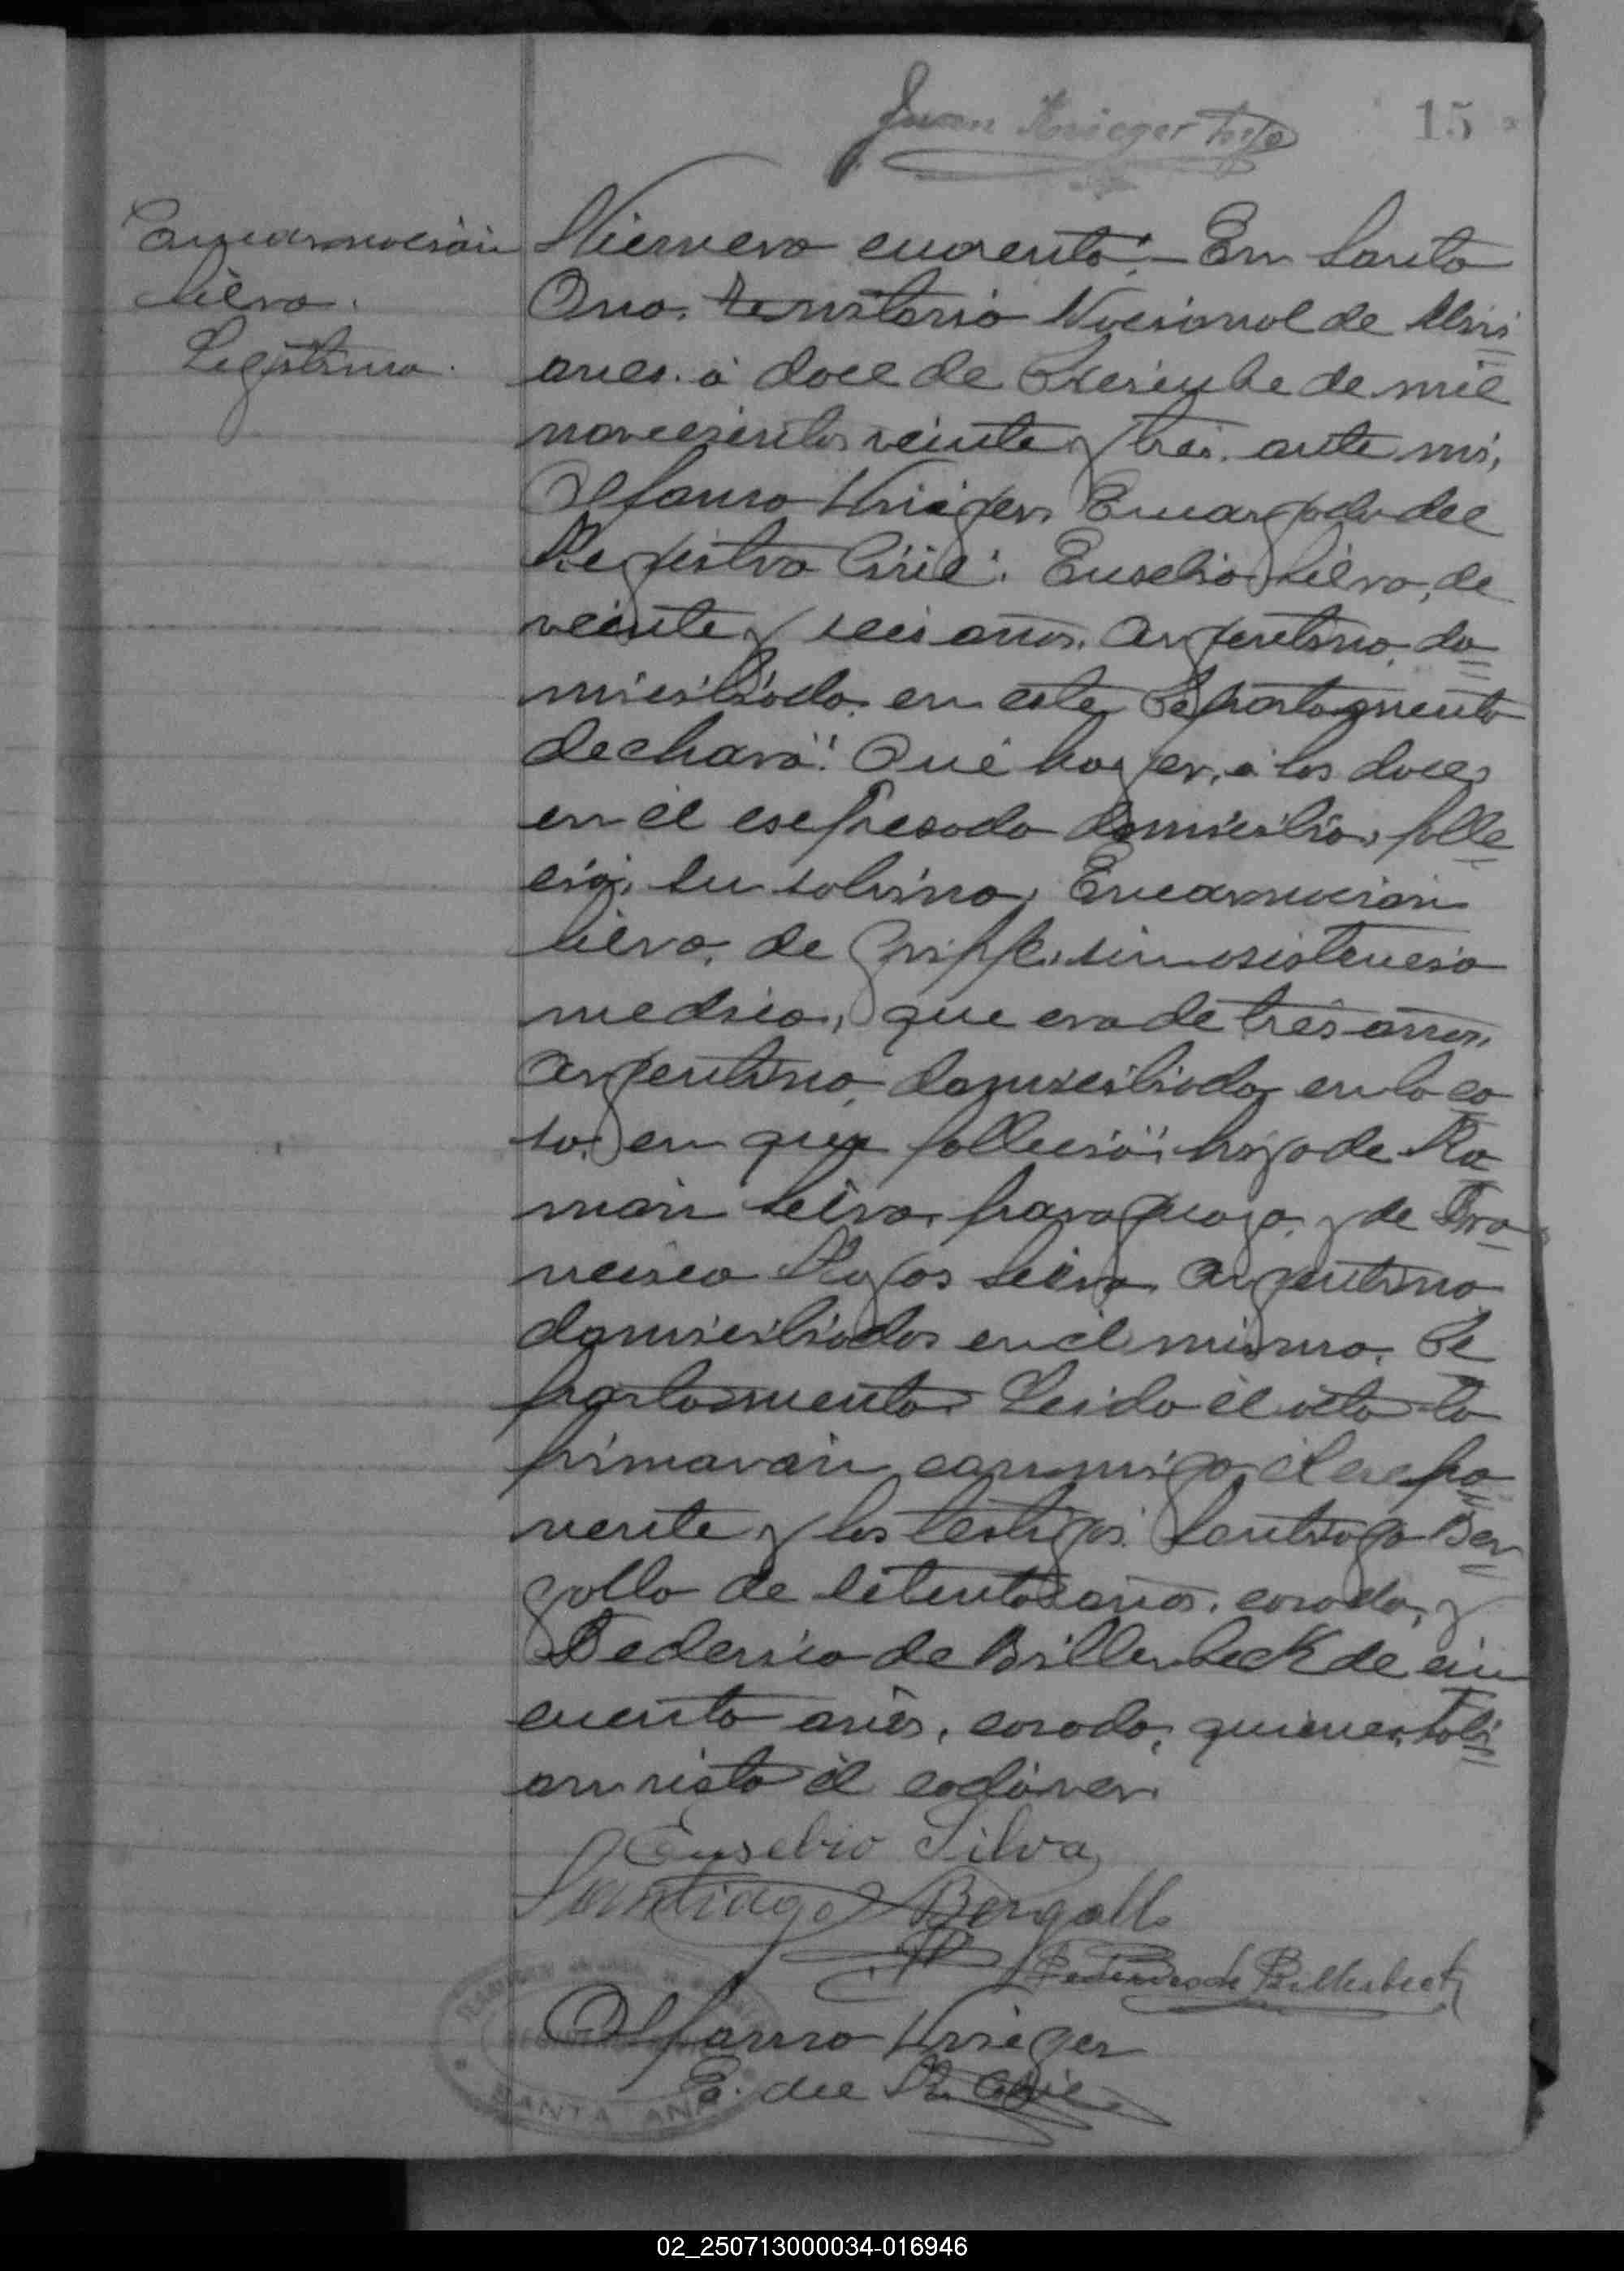 Juan Krieger
15
Encarnación
Silva.
Legítima.
Número cuarenta:- En Santa
Ana. territorio Nacional de Misi
ones. á doce de Diciembre de mil
novecientos veinte y tres. ante mi,
Alfonso Krieger, Encargado del
Registro Civil: Eusebio Silva, de
veinte y seis años. Argentino, do
miciliado. en este Departamento
declaró: Que hoy á las doce
en el espresado domicilio, falle
ció, su sobrina, Encarnación
Silva, de Grippe, sin asistencia
medica, que era de tres años,
argentina, domiciliada en la ca
sa, en que falleció; hija de Ra
món Silva, paraguayo, y de Fra
ncisca Rojas Silva Argentina
domiciliados en el mismo. De
partamento. Leido el acta la
firmarón conmigo, el espo
nente y los testigos. Santiago Ber
gallo de setenta años. casado, y
Federico de Billerbeck de cin
cuenta años, casado, quienes, habi
an visto el cadáver.
Eusebio Silva
Santiago Bergallo
Federico de Billerbeck
Alfonso Krieger
E. del R. Civil
SANTA ANA
02_250713000034-016946